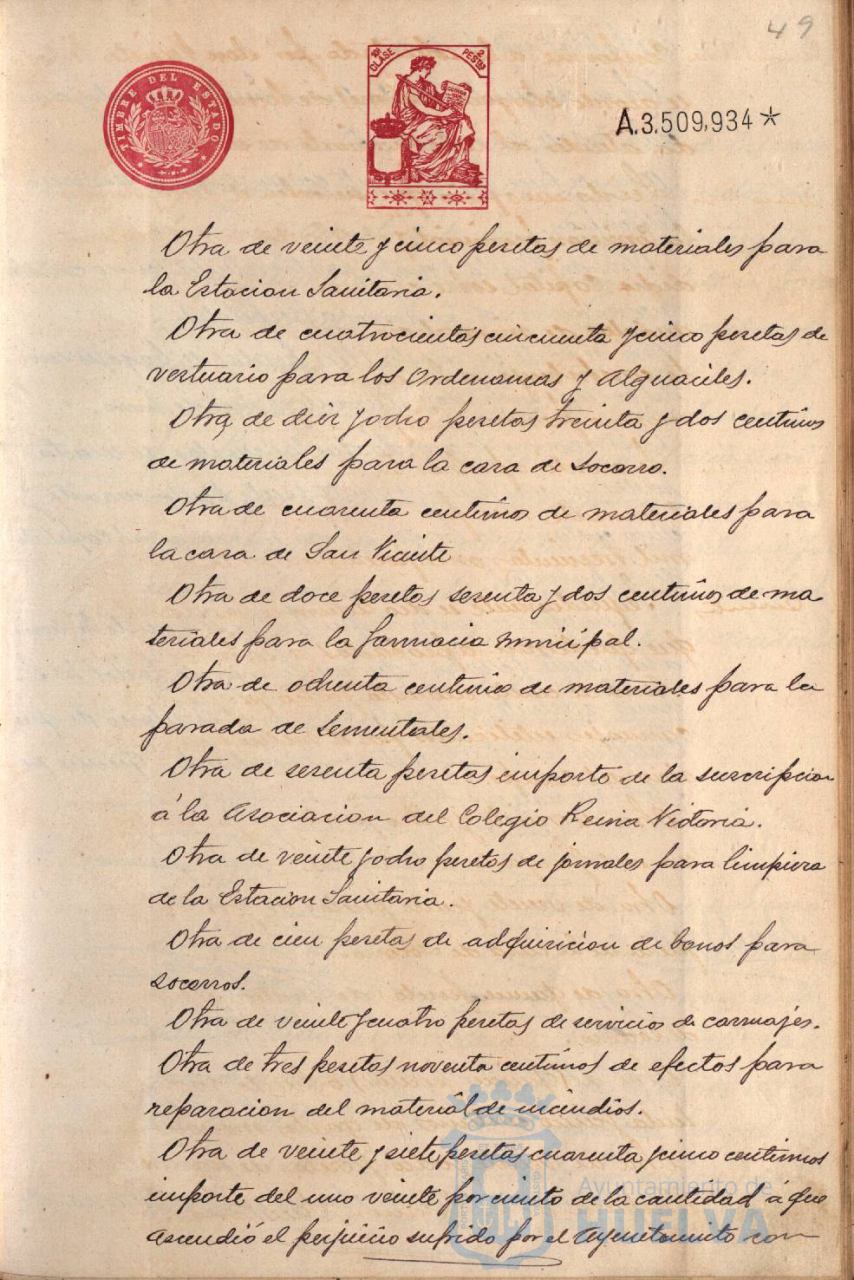 49
TIMBRE DEL ESTADO
CLASE 2 PESTAS
A.3.509,934*
Otra de veinte y cinco pesetas de materiales para
la Estacion Sanitaria.
Otra de cuatrocientas cincuenta y cinco pesetas de
vestuario para los Ordenanzas y Alguaciles.
Otra de diez y ocho pesetas treinta y dos centimos
de materiales para la casa de Socorro.
Otra de cuarenta centimos de materiales para
la casa de San Vicente
Otra de doce pesetas sesenta y dos centimos de ma
teriales para la farmacia municipal.
Otra de ochenta centimos de materiales para la
parada de Sementales.
Otra de sesenta pesetas importe de la suscripcion
á la Asociacion del Colegio Reina Victoria.
Otra de veinte y ocho pesetas de jornales para limpieza
de la Estacion Sanitaria.
Otra de cien pesetas de adquisicion de bonos para
socorros.
Otra de veinte y cuatro pesetas de servicios de carruajes.
Otra de tres pesetas noventa centimos de efectos para
reparacion del material de incendios.
Otra de veinte y siete pesetas cuarenta y cinco centimos
importe del uno veinte por ciento de la cantidad á que
ascendió el perjuicio sufrido por el Ayuntamiento con
Ayuntamiento de
HUELVA